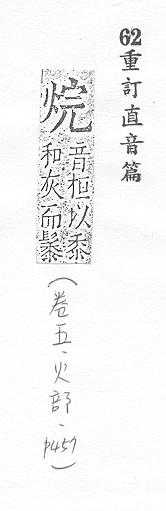 62重訂直音篇
烷
音桓以桼
和灰而髹
(卷五·火部·p457)